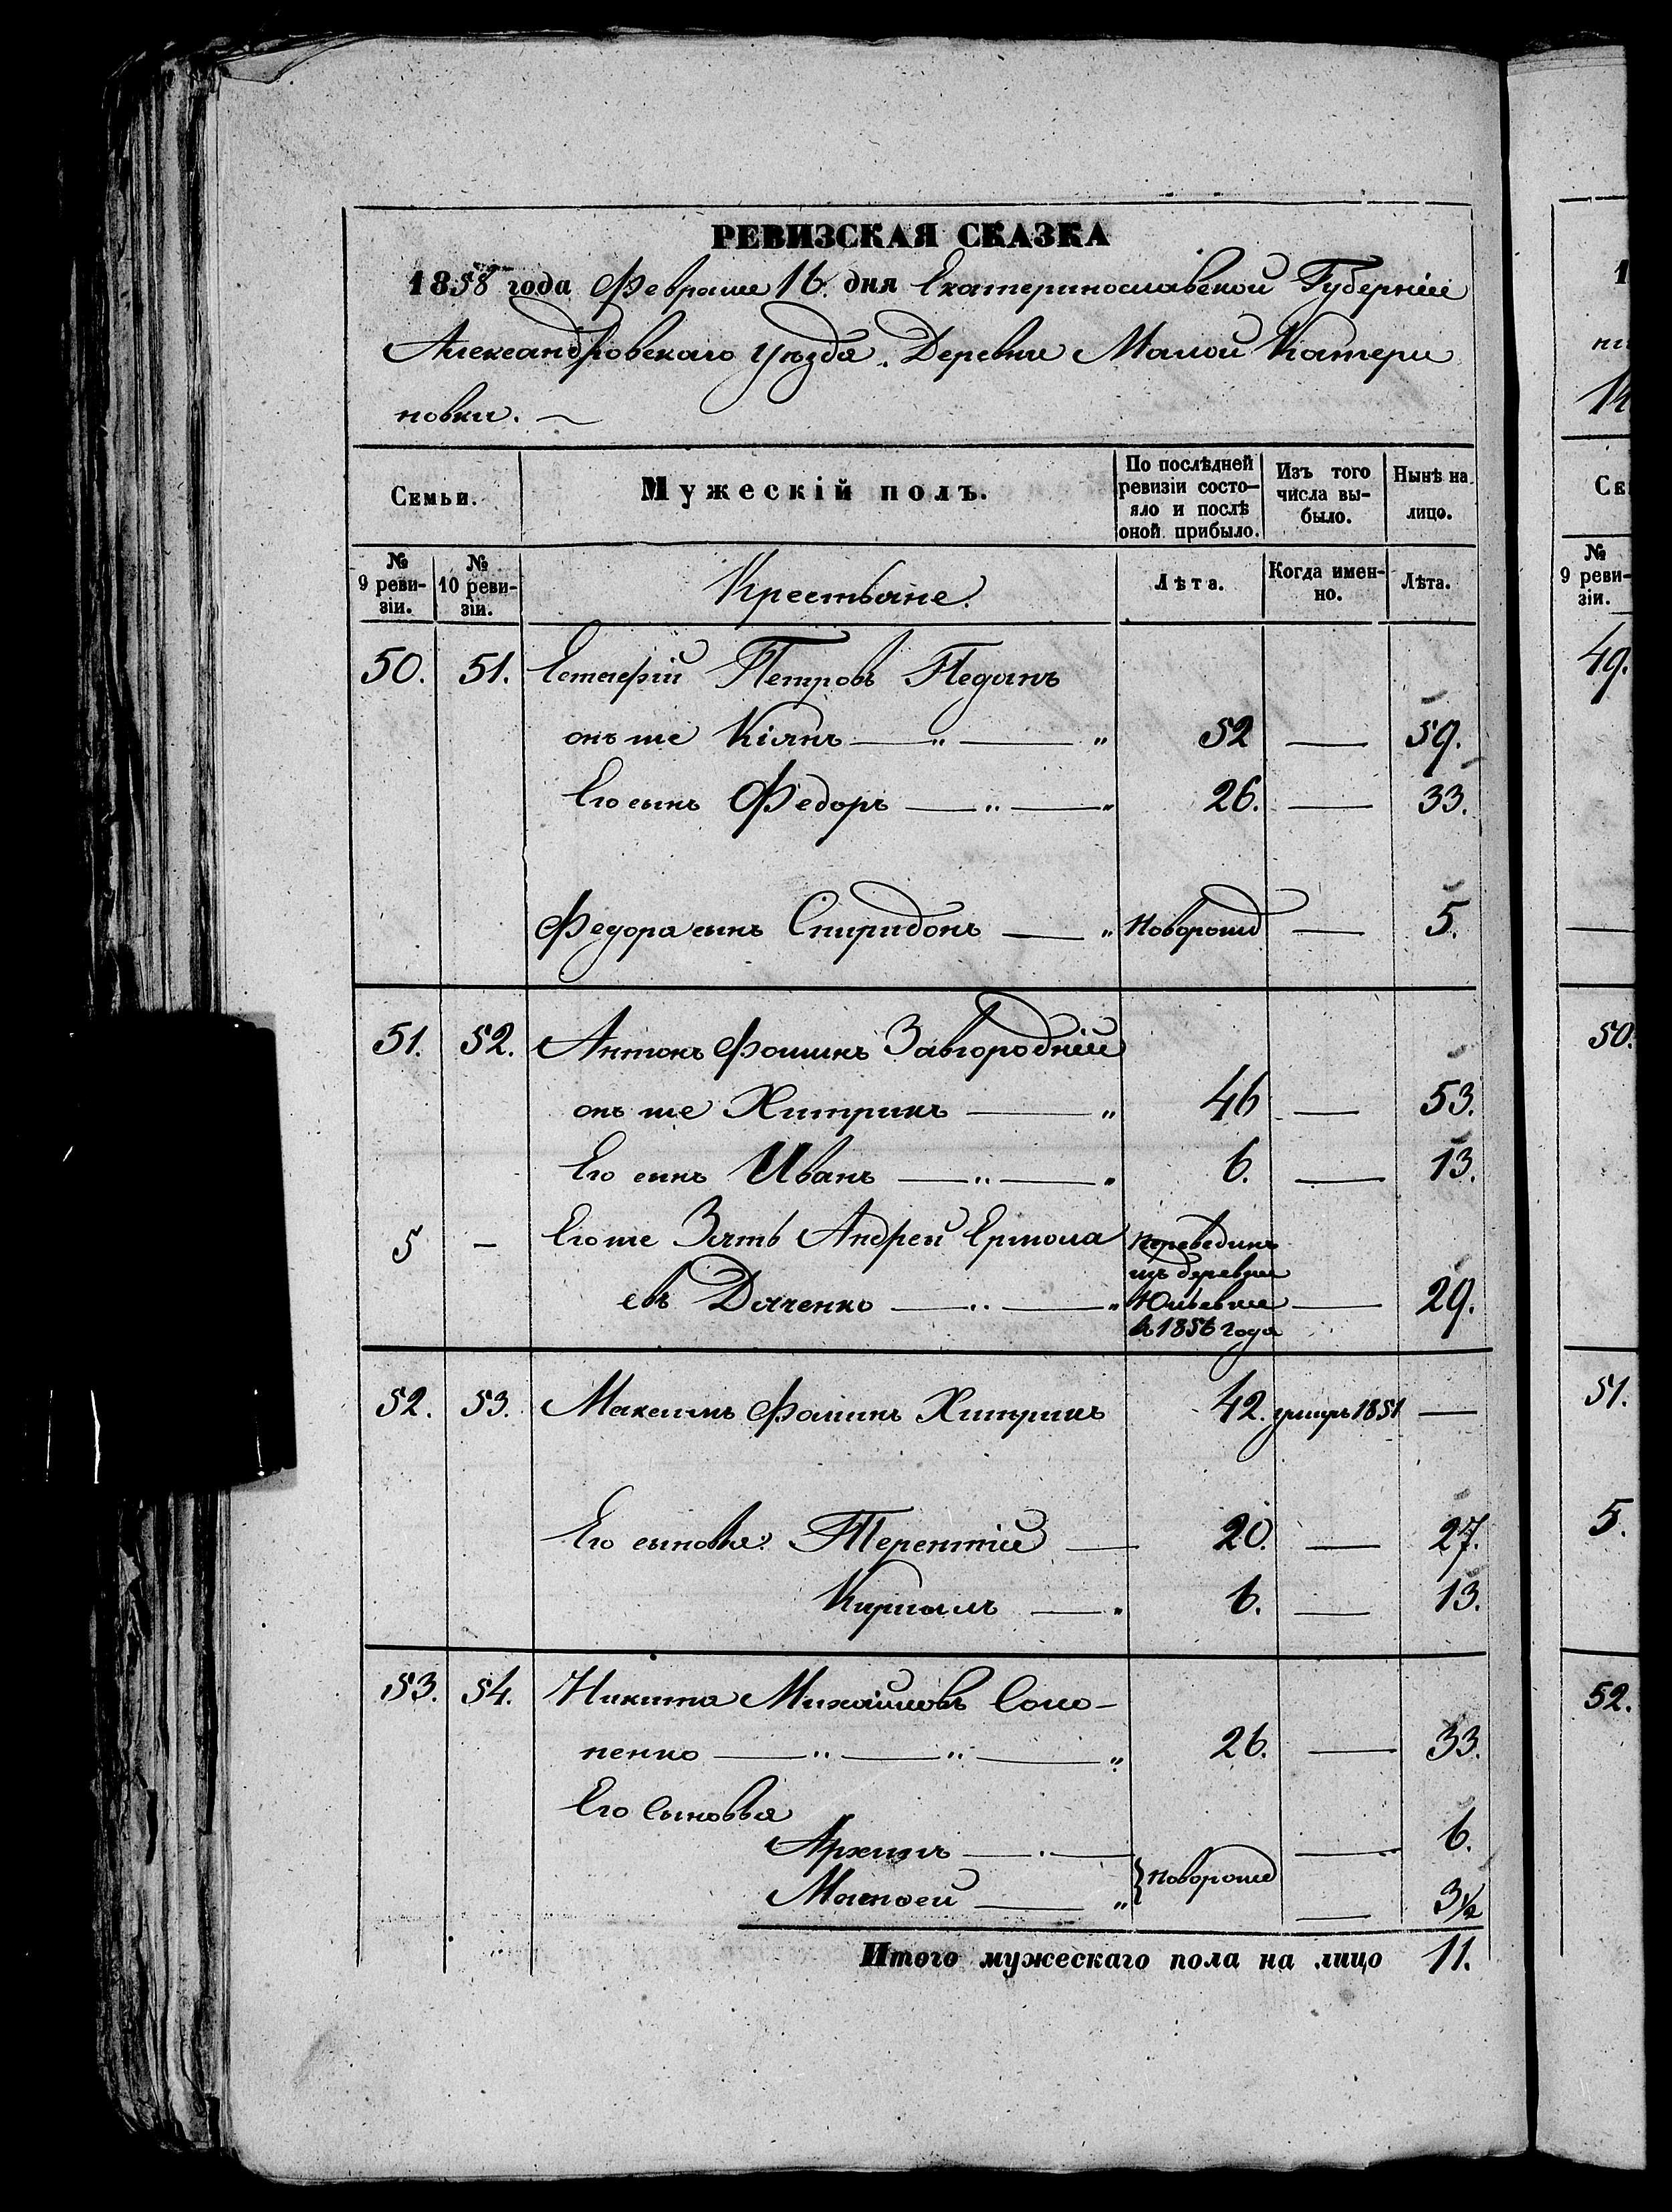 РЕВИЗСКАЯ СКАЗКА
1858 года Февраля 16. дня Екатеринославской Губерніи
Александровскаго уѣзда. Деревни Малой Катери
новки.
Семьи. Мужескій полъ. По послѣдней ревизіи состояло и послѣ оной прибыло. Изъ того числа выбыло. Нынѣ на лицо.
№ 9 ревизіи. № 10 ревизіи. Крестьяне. Лѣта. Когда именно. Лѣта.
50. 51. Петровъ Педанъ
онъ же Кіянъ 52 — 59.
Его сынъ Федоръ 26. — 33.
Федора сынъ Спиридонъ Неворожд — 5.
51. 52. Антонъ Фоминъ Завгородній
онъ же Хитрикъ 46 — 53.
Его сынъ Иванъ 6. — 13.
5 — Его же Зять Андрей Ермола
евъ Дяченко — 29.
перевединъ
изъ деревни
Юльевки
въ 1856 года
52. 53. Максимъ Фоминъ Хитрикъ 42. умиръ 1851 —
Его сыновья: Терентій 20. — 27.
Кирилъ 6. — 13.
53. 54. Никита Михайловъ Соло-
ненко 26. — 33.
Его Сыновья
Архипъ — 6.
новорожд
Матвей — 3½
Итого мужескаго пола на лицо 11.
1
Се
№
9 реви-
зіи.
49.
50.
51.
5.
52.